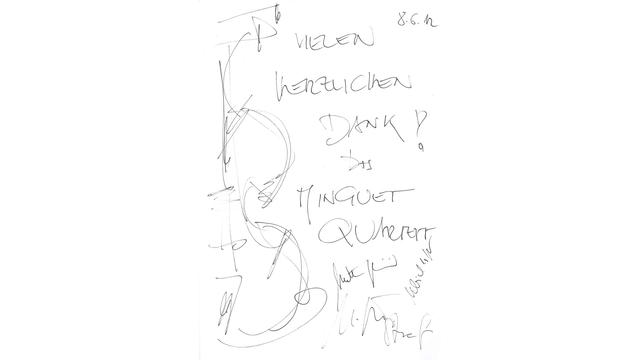 8.6.12
VIELEN
HERZLICHEN
DANK!
Das
MINGUET
QUARTETT